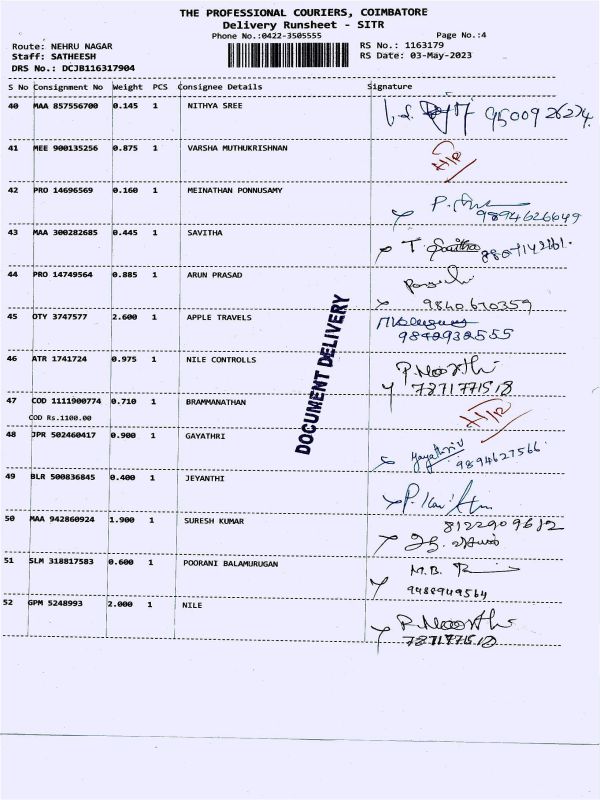 THE PROFESSIONAL COURIERS, COIMBATORE
Delivery Runsheet - SITR
Phone No.:0422-3505555 Page No.:4
Route: NEHRU NAGAR RS No.: 1163179
Staff: SATHEESH RS Date: 03-May-2023
DRS No.: DCJB116317904
S No Consignment No Weight PCS Consignee Details Signature
40 MAA 857556700 0.145 1 NITHYA SREE 9500926274
41 MEE 900135256 0.875 1 VARSHA MUTHUKRISHNAN
42 PRO 14696569 0.160 1 MEINATHAN PONNUSAMY
9894626649
43 MAA 300282685 0.445 1 SAVITHA T. Savitha
44 PRO 14749564 0.885 1 ARUN PRASAD
9840670359
45 OTY 3747577 2.600 1 APPLE TRAVELS
9842932555
46 ATR 1741724 0.975 1 NILE CONTROLLS P. Moorthi
7871771518
47 COD 1111900774 0.710 1 BRAMMANATHAN
COD Rs.1100.00
48 JPR 502460417 0.900 1 GAYATHRI
9894627566
49 BLR 500836845 0.400 1 JEYANTHI
50 MAA 942860924 1.900 1 SURESH KUMAR 8122909612
51 SLM 318817583 0.600 1 POORANI BALAMURUGAN M.B.
9488949564
52 GPM 5248993 2.000 1 NILE P. Moorthi
7871771518
DOCUMENT DELIVERY